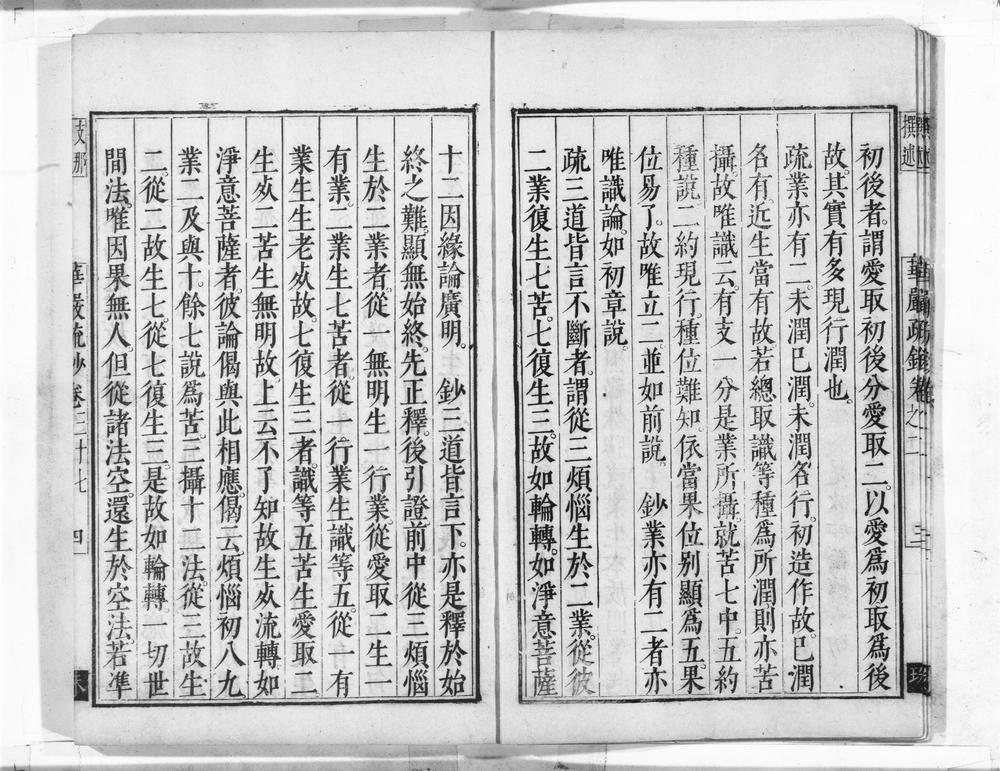 初後者。謂愛取初後分愛取二。以愛爲初取爲後
故。其實有多現行潤也。
疏業亦有二。未潤已潤。未潤名行。初造作故。已潤
名有。近生當有故。若總取識等種爲所潤。則亦苦
攝。故唯識云。有支一分是業所攝。就苦七中。五約
種說二約現行。種位難知。依當果位別顯爲五。果
位易了。故唯立二。並如前說。 鈔業亦有二者亦
唯識論。如初章說。
疏三道皆言不斷者。謂從三煩惱生於二業。從彼
二業復生七苦。七復生三。故如輪轉。如淨意菩薩
十二因緣論廣明。 鈔三道皆言下。亦是釋於始
終之難。顯無始終。先正釋。後引證前中從三煩惱
生於二業者。從一無明生一行業從愛取二生一
有業。二業生七苦者。從一行業生識等五。從一有
業生生老死故。七復生三者。識等五苦生愛取二
生死二苦生無明故。上云不了知故生死流轉如
淨意菩薩者。彼論偈與此相應。偈云。煩惱初八九
業二及與十。餘七說爲苦。三攝十二法。從三故生
二。從二故生七。從七復生三。是故如輪轉。一切世
間法。唯因果無人。但從諸法空。還生於空法。若準
華嚴疏鈔卷二十七
四
支那
撰述